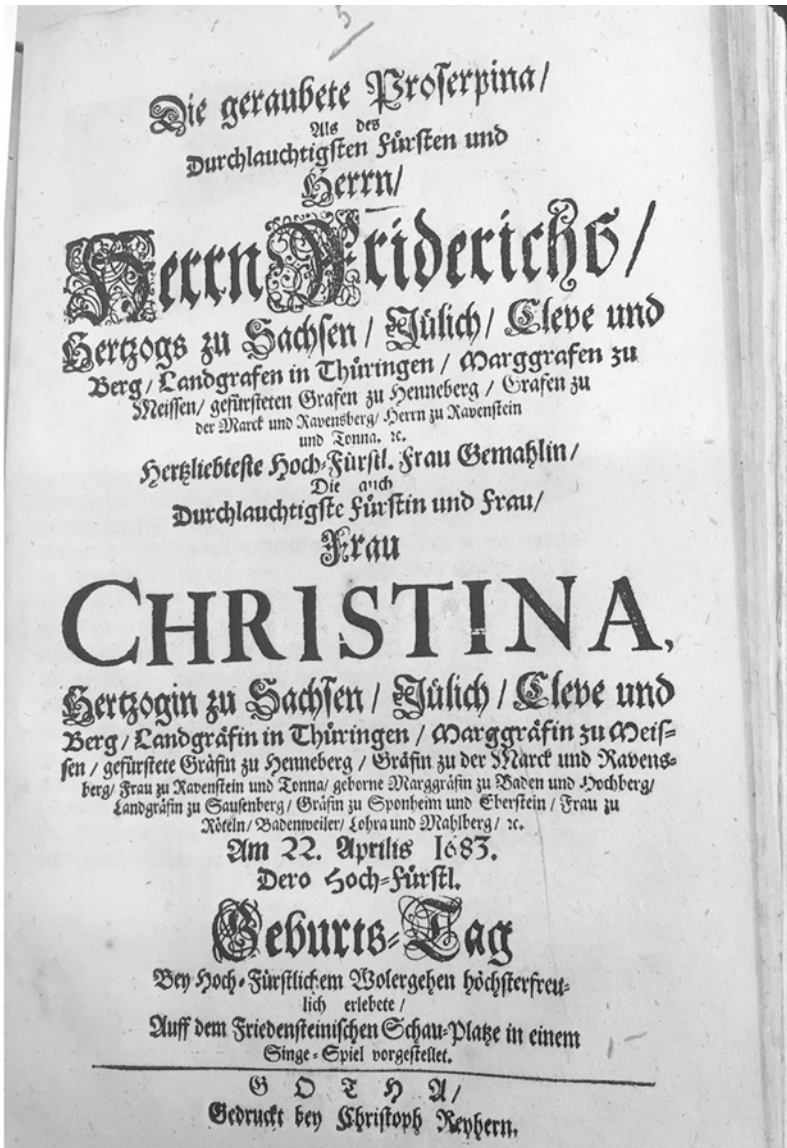 5
Die geraubete Proserpina/
Als des
Durchlauchtigsten Fürsten und
Herrn/
Herrn Friderichs/
Hertzogs zu Sachsen / Jülich/ Cleve und
Berg/ Landgrafen in Thüringen / Marggrafen zu
Meissen/ gefürsteten Grafen zu Henneberg / Grafen zu
der Marck und Ravensberg/ Herrn zu Ravenstein
und Tonna. ꝛc.
Hertzliebteste Hoch-Fürstl. Frau Gemahlin/
Die auch
Durchlauchtigste Fürstin und Frau/
Frau
CHRISTINA,
Hertzogin zu Sachsen / Jülich / Cleve und
Berg / Landgräfin in Thüringen / Marggräfin zu Meis-
sen / gefürstete Gräfin zu Henneberg / Gräfin zu der Marck und Ravens-
berg/ Frau zu Ravenstein und Tonna/ geborne Marggräfin zu Baden und Hochberg/
Landgräfin zu Sausenberg / Gräfin zu Sponheim und Eberstein / Frau zu
Röteln/ Badenweiler/ Lohra und Mahlberg/ ꝛc.
Am 22. Aprilis 1683.
Dero Hoch-Fürstl.
Geburts-Tag
Bey Hoch-Fürstlichem Wolergehen höchsterfreu-
lich erlebete /
Auff dem Friedensteinischen Schau-Platze in einem
Singe-Spiel vorgestellet.
GOTHA/
Gedruckt bey Christoph Reyhern.